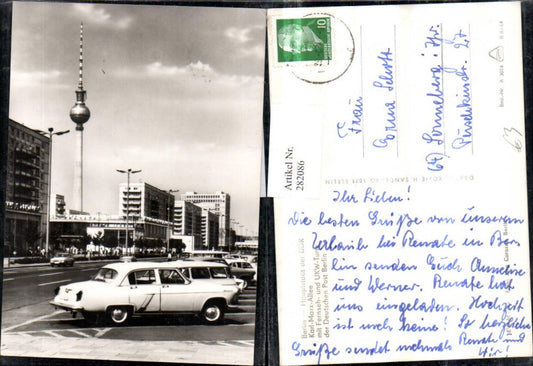 10
Frau
Erna Schott
64 Sonneberg i. Thr.
Puschkinstr. 27
Artikel Nr.
282086
Ihr Lieben!
Die besten Grüße von unserem
bei Renate in Ber-
lin senden Euch Annelise
und Werner. Renate hat
uns eingeladen. Hochzeit
ist auch heute! So herzliche
Grüße sendet nochmals Renate und
Wir!
Berlin · Hauptstadt der DDR
Karl-Marx-Allee
mit Fernseh- und UKW-Turm
der Deutschen Post Berlin
€3